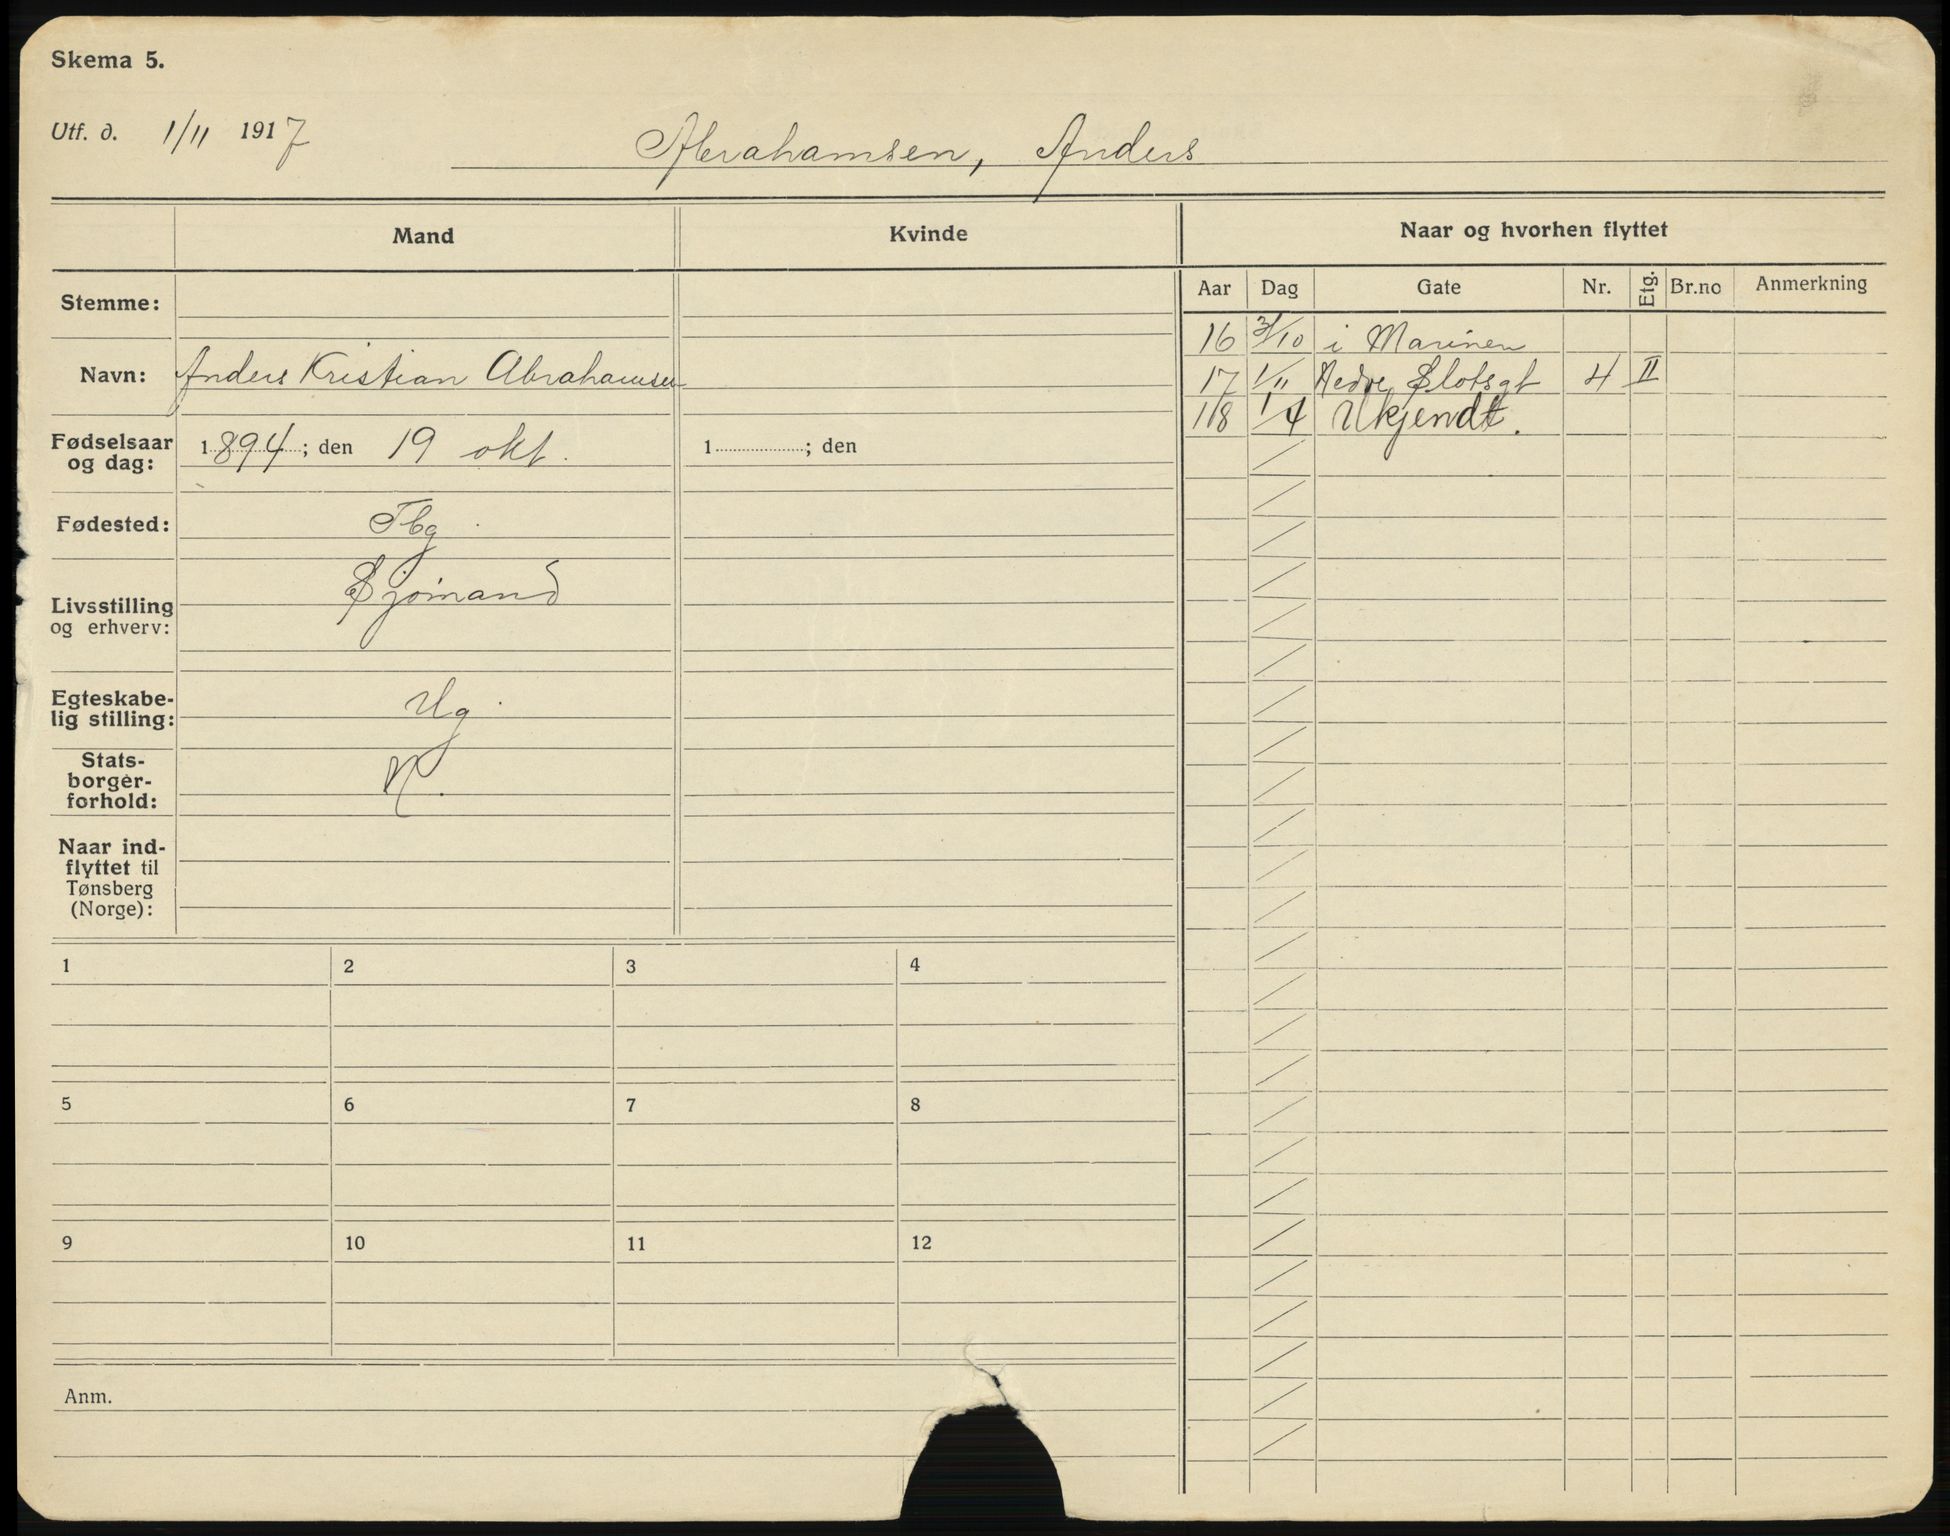 Skema 5.
Utf. d. 1/11 1917
Abrahamsen, Anders
Mand
Kvinde
Naar og hvorhen flyttet
Aar Dag Gate Nr. Etg. Br.no Anmerkning
16 /10 i Marinen
17 1/11 Nedre Slotsgt 4 II
18 1/4 Ukjendt.
Stemme:
Navn: Anders Kristian Abrahamsen
Fødselsaar
og dag: 1894; den 19 okt. 1 ; den
Fødested: Tbg.
Livsstilling
og erhverv: Sjømand
Egteskabe-
lig stilling: Ug.
Stats-
borger-
forhold: N.
Naar ind-
flyttet til
Tønsberg
(Norge):
1 2 3 4
5 6 7 8
9 10 11 12
Anm.